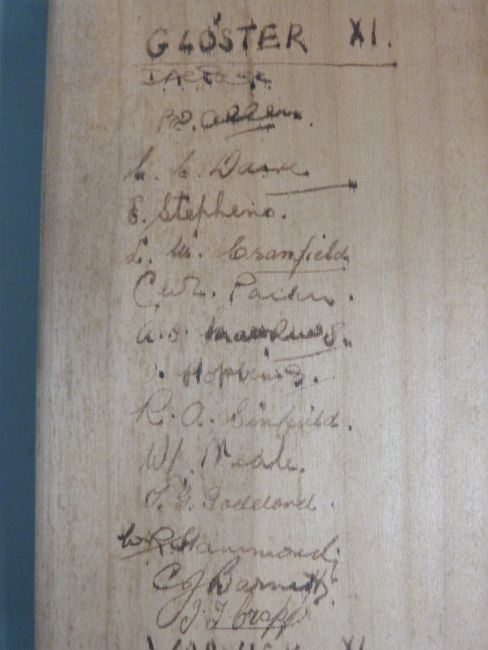 GLOSTER XI.
B.O. Allen.
C. C. Dacre.
E. Stephens.
L. M. Cranfield.
C.W.L. Parker.
A.D. Matthews.
Hopkins.
R. A. Sinfield.
W. Neale.
T. G. Goddard.
W R Hammond
C J Barnett
J F Crapp
XI